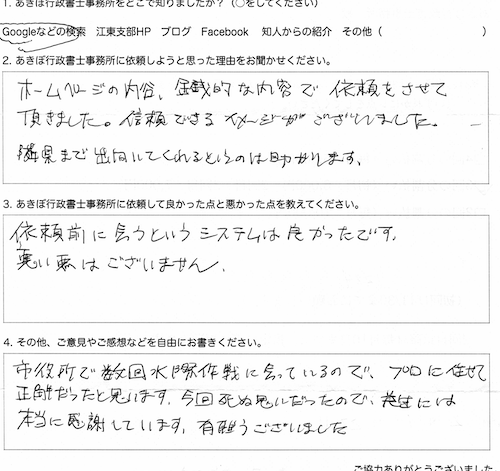 1. あきぼ行政書士事務所をどこで知りましたか？（○をしてください）
Googleなどの検索　江東支部HP　ブログ　Facebook　知人からの紹介　その他（　　　　　）
2. あきぼ行政書士事務所に依頼しようと思った理由をお聞かせください。
ホームページの内容、金銭的な内容で依頼をさせて
頂きました。信頼できるイメージがございました。
まで出向いてくれるというのは助かります。
3. あきぼ行政書士事務所に依頼して良かった点と悪かった点を教えてください。
依頼前に会うというシステムは良かったです。
悪い点はございません。
4. その他、ご意見やご感想などを自由にお書きください。
市役所で数回水際作戦に会っているので、プロに任せて
正解だったと思います。今回死ぬ思いだったので、先生には
本当に感謝しています。有難うございました
ご協力ありがとうございました